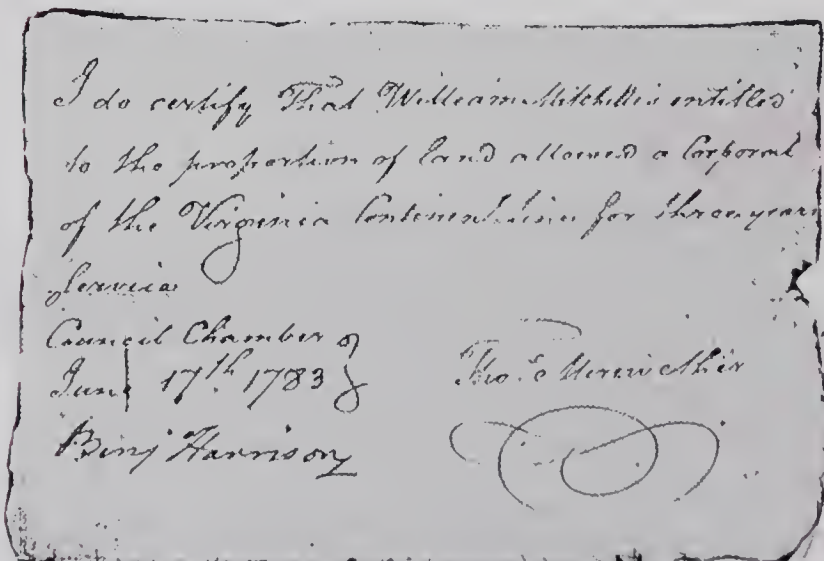 I do certify That William Mitchell is entitled
to the proportion of land allowed a Corporal
of the Virginia Continent. line for three years
Service
Council Chamber
June 17th 1783
Thos Meriwether
Benj Harrison